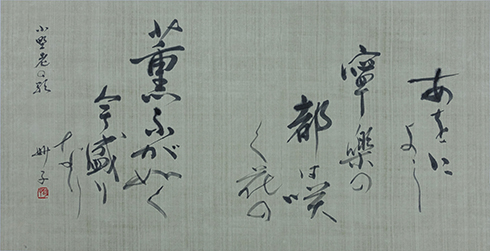 あをに
よし
寧樂の
都は咲
く花の
薫ふが如く
今盛り
なり
小野老の歌
妙子